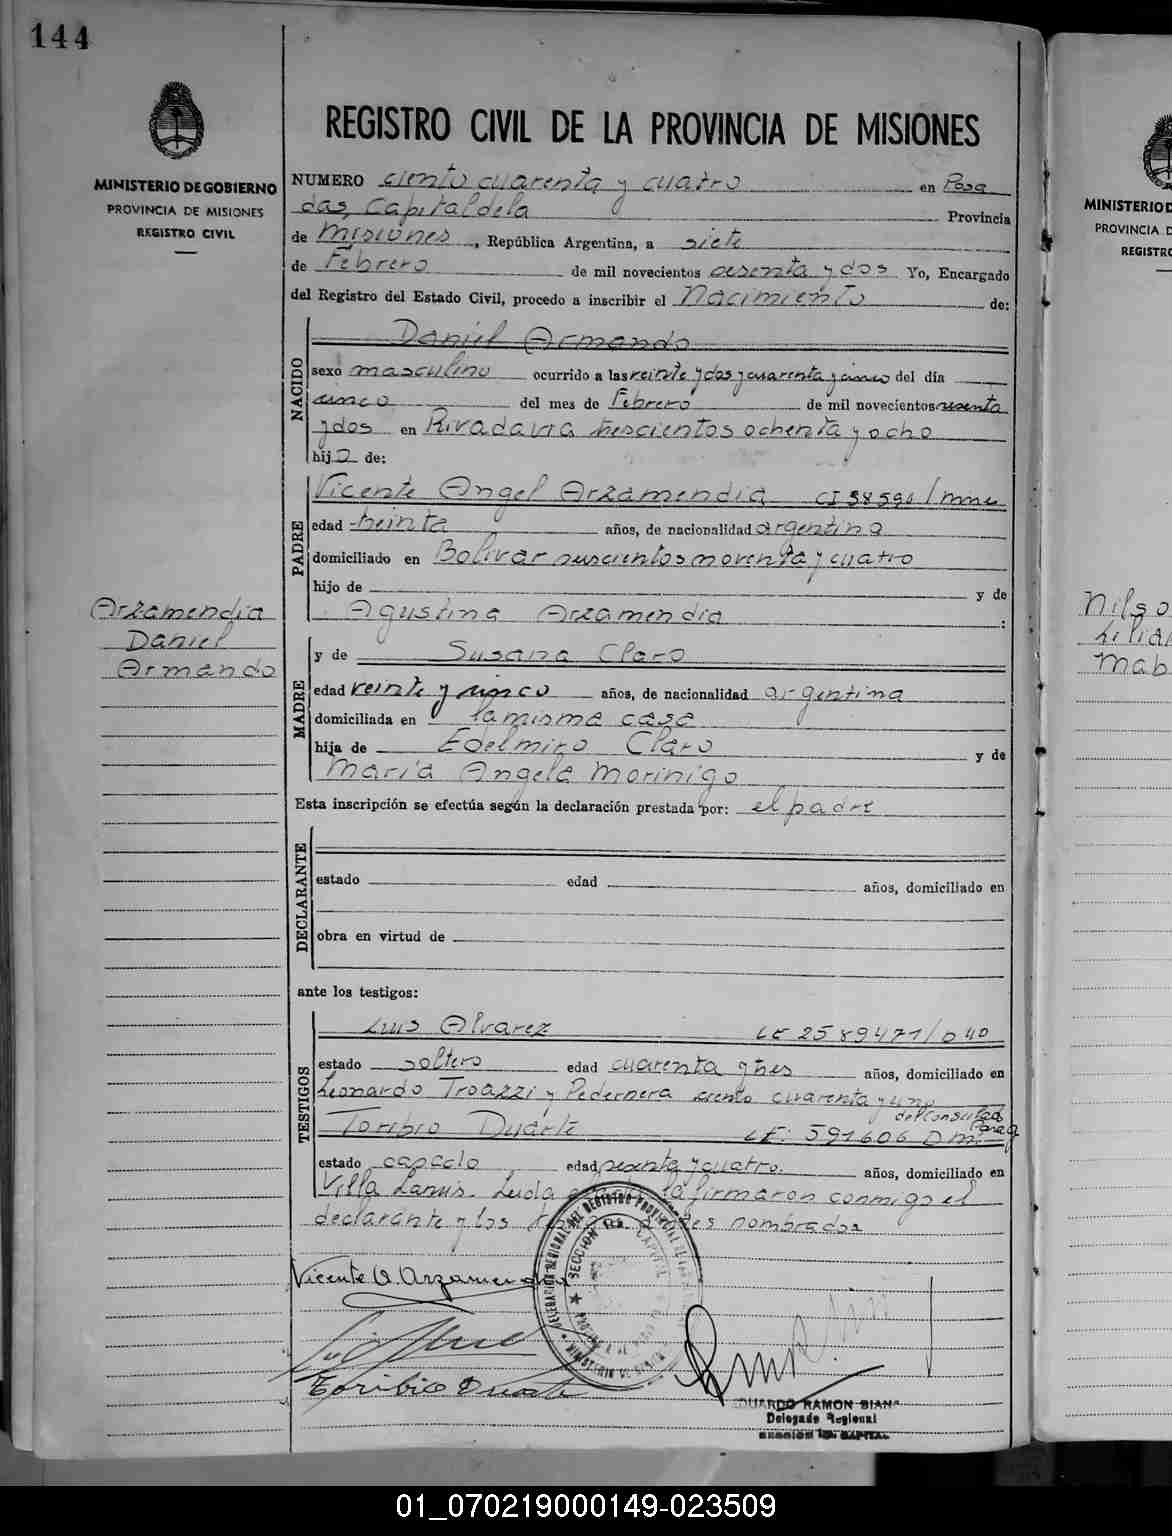 144
MINISTERIO DE GOBIERNO
PROVINCIA DE MISIONES
REGISTRO CIVIL
REGISTRO CIVIL DE LA PROVINCIA DE MISIONES
NUMERO ciento cuarenta y cuatro en Posa
das, Capital de la Provincia
de Misiones, República Argentina, a siete
de Febrero de mil novecientos sesenta y dos Yo, Encargado
del Registro del Estado Civil, procedo a inscribir el Nacimiento de:
NACIDO
Daniel Armando
sexo masculino ocurrido a las veinte y dos y cuarenta y cinco del día
cinco del mes de Febrero de mil novecientos sesenta
y dos en Rivadavia trescientos ochenta y ocho
hijo de:
PADRE
Vicente Angel Arzamendia CI
edad treinta años, de nacionalidad argentina
domiciliado en Bolivar noventa y cuatro
hijo de y de
Agustina Arzamendia :
MADRE
y de Susana Claro
edad veinte y cinco años, de nacionalidad argentina
domiciliada en la misma casa
hija de Edelmiro Claro y de
Maria Angela Morinigo
Esta inscripción se efectúa según la declaración prestada por: el padre
DECLARANTE
estado edad años, domiciliado en
obra en virtud de
ante los testigos:
TESTIGOS
Luis Alvarez LE 2589471/
estado soltero edad cuarenta y tres años, domiciliado en
Leonardo Troazzi y Pedernera ciento cuarenta y uno
Toribio Duarte 591606
estado casado edad sesenta y cuatro. años, domiciliado en
Villa Lanus. Leida la firmaron conmigo el
declarante y los nombrados
Arzamendia
Daniel
Armando
Vicente A. Arzamendia
Toribio Duarte
DELEGACION REGIONAL DEL REGISTRO PROVINCIAL DE LAS
SECCION 1ra. CAPITAL
EDUARDO RAMON
Delegado Regional
SECCION 1ra. CAPITAL
MINISTERIO D
PROVINCIA D
REGISTRO
Nilso
Lilia
Mab
01_070219000149-023509